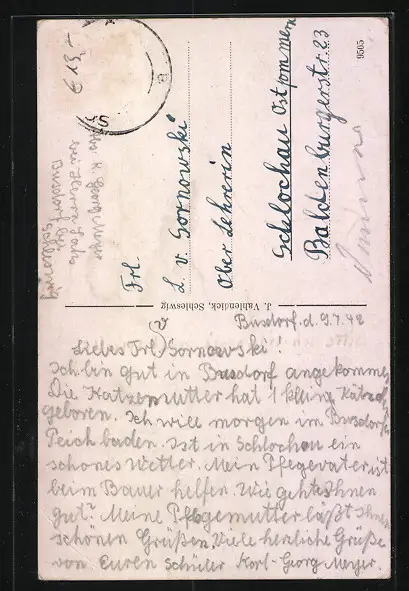 Busdorf. d. 9.7.42
Liebes Frl. v. Gornowski!
Ich bin gut in Busdorf angekommen.
Die Katzenmutter hat 1 kleine Kätzchen
geboren. Ich will morgen im Busdorfer
Teich baden. Ist in Schlochau ein
schönes Wetter. Mein Pflegevater ist
beim Bauer helfen. Wie geht es Ihnen
gut? Meine Pflegemutter läßt Ihnen
schönen Grüßen. Viele herzliche Grüße
von Euren Schüler Karl-Georg Meyer.
Frl.
L. v. Gornowski
Ober Lehrerin
Schlochau Ostpommern
Baldenburgerstr. 23
Georg Meyer
Busdorf
J. Vahlendick, Schleswig
9505
€ 13,-